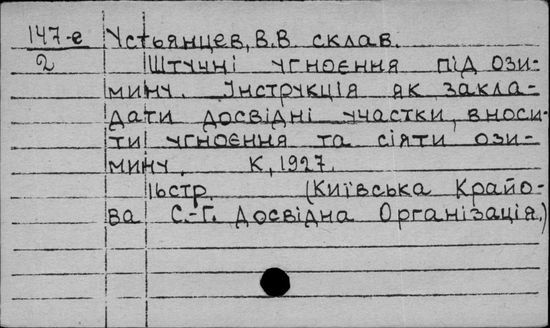 147-е Устьянцев, В.В. склав.
2 Штучні угноєння під ози-
мину. Інструкція як закла-
дати досвідні участки, вноси-
ти угноєння та сіяти ози-
мину. К, 1927.
16стр. (Київська Крайо-
ва С.-Г. Досвідна Організація.)